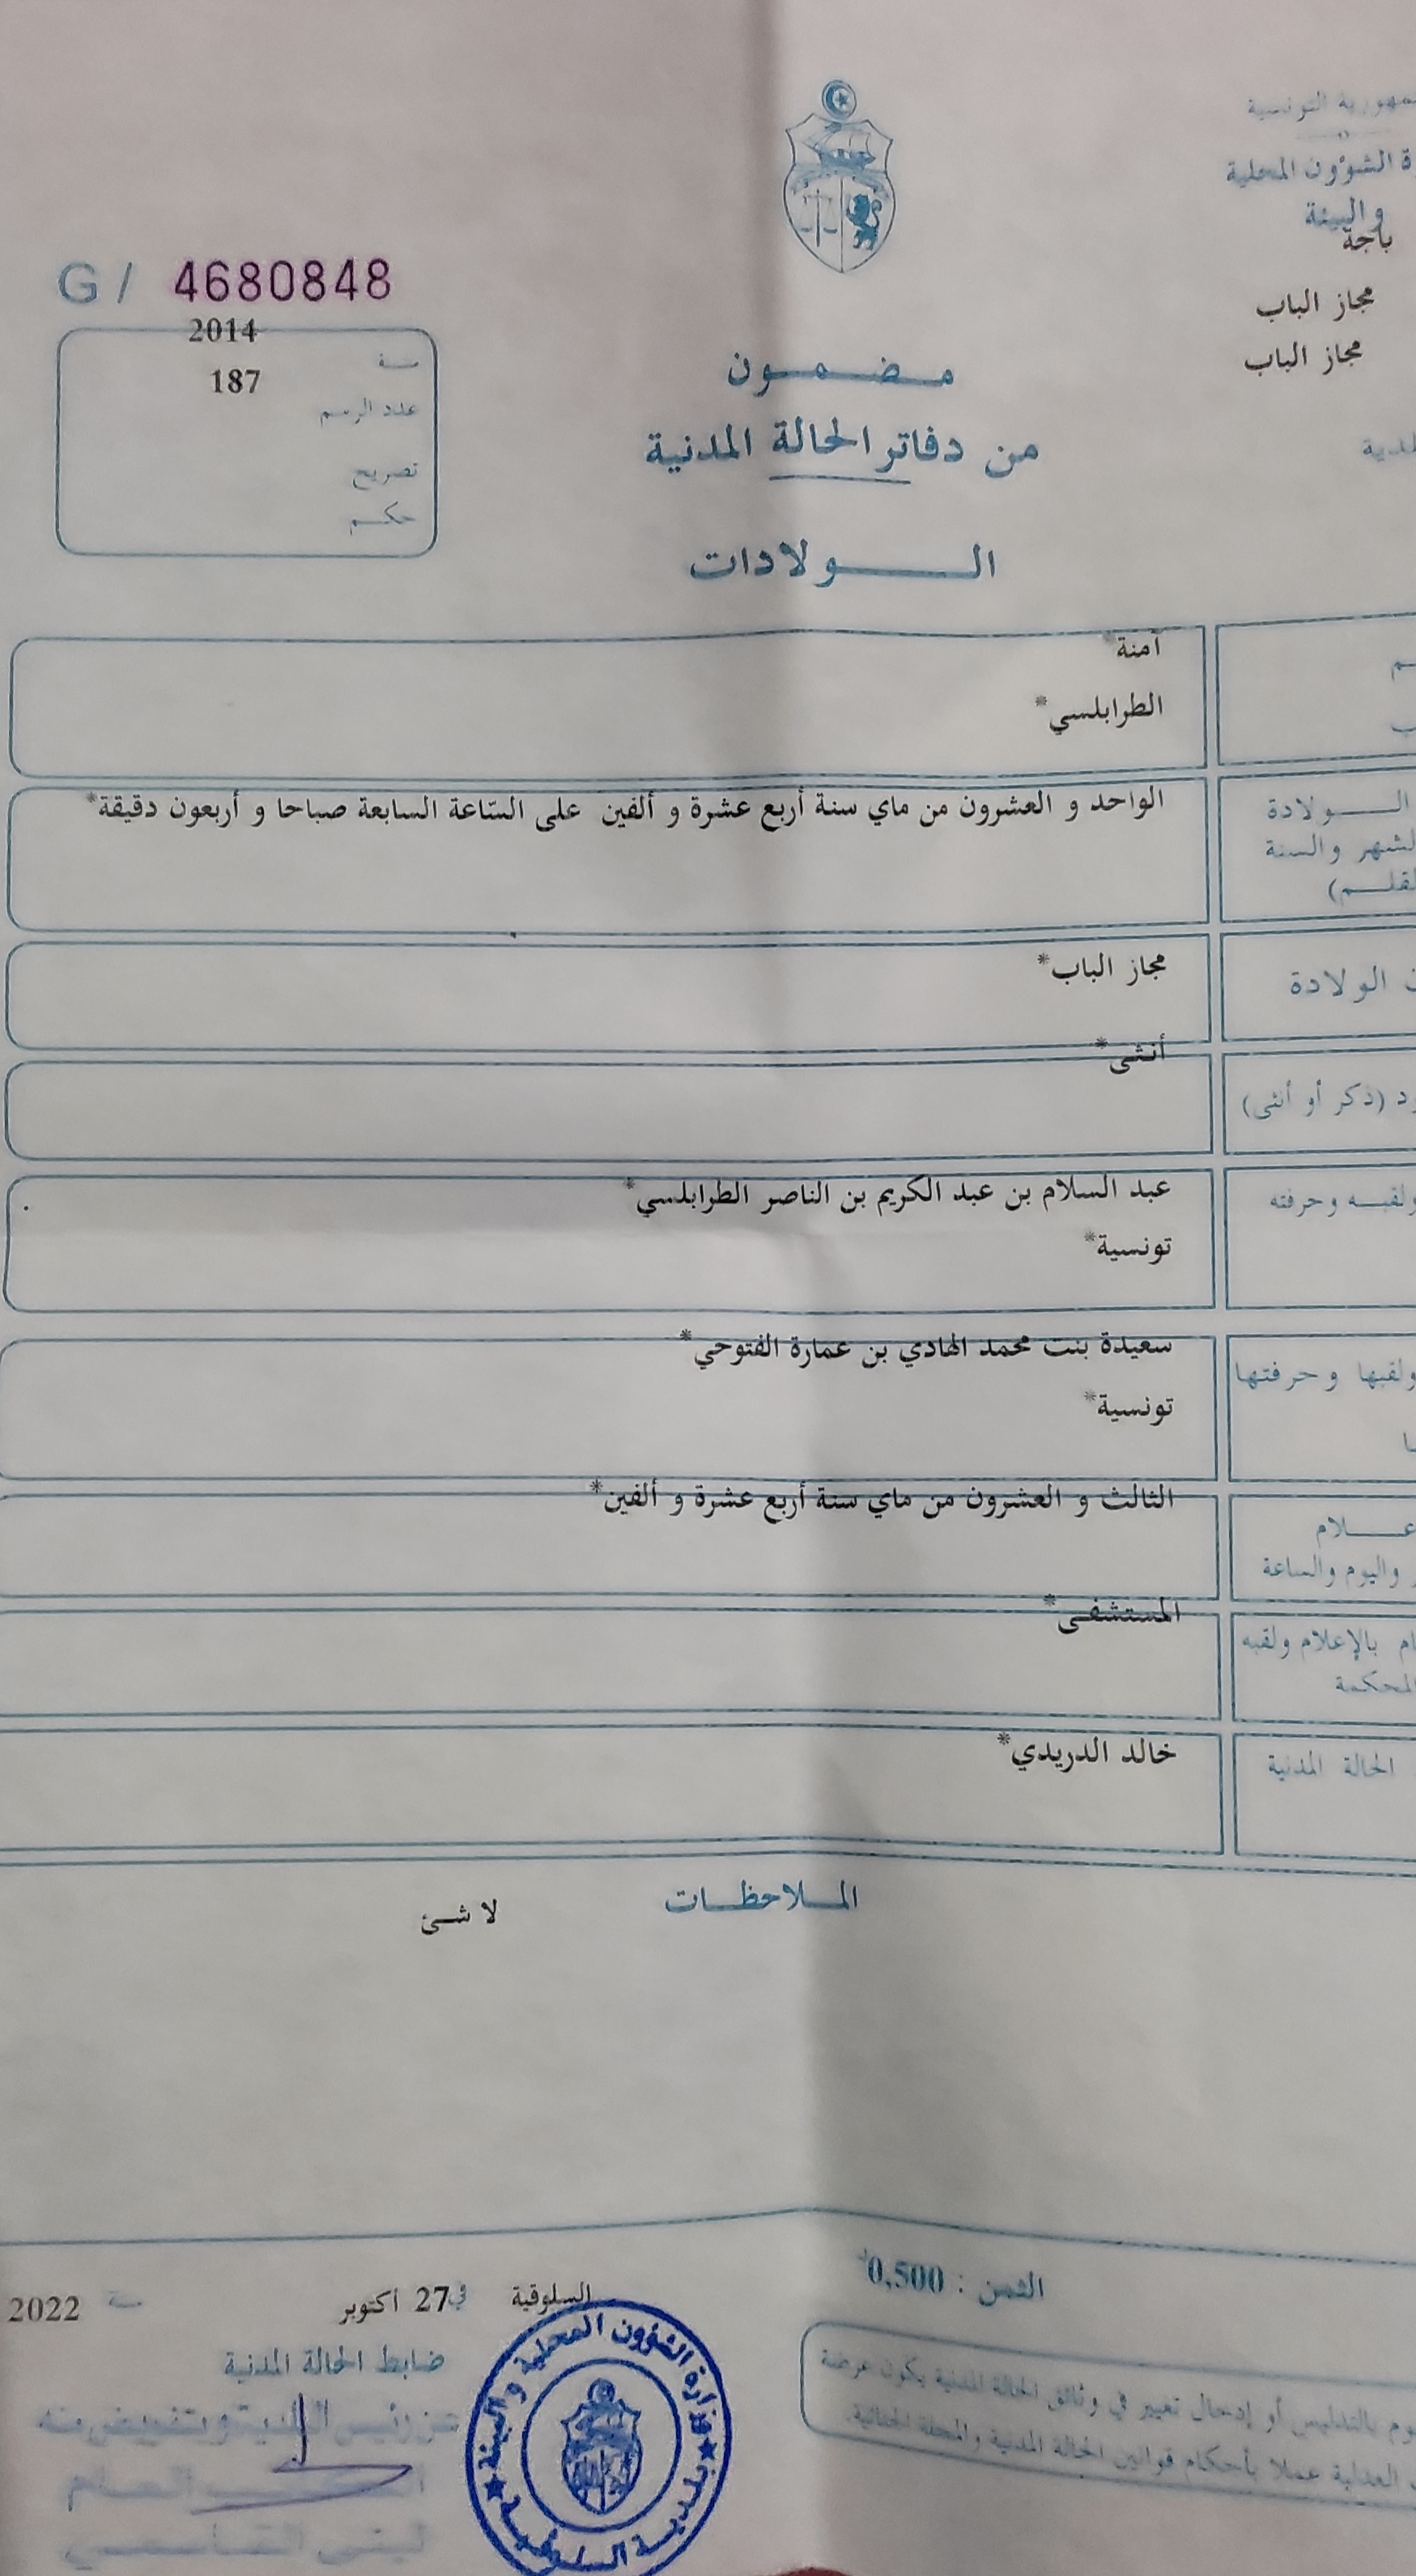 التونسية
الشؤون المحلية
والبيئة
باجة
مجاز الباب
مجاز الباب
G / 4680848
2014
سنة
187
عدد الرسم
تصريح
حكم
مضمون
من دفاتر الحالة المدنية
الولادات
آمنة*
الطرابلسي*
الولادة
والسنة
الواحد و العشرون من ماي سنة أربع عشرة و ألفين على السّاعة السابعة صباحا و أربعون دقيقة*
الولادة
مجاز الباب*
(ذكر أو أنثى)
أنثى*
وحرفته
عبد السلام بن عبد الكريم بن الناصر الطرابلسي*
تونسية*
ولقبها وحرفتها
سعيدة بنت محمد الهادي بن عمارة الفتوحي*
تونسية*
واليوم والساعة
الثالث و العشرون من ماي سنة أربع عشرة و ألفين*
بالإعلام ولقبه
المستشفى*
الحالة المدنية
خالد الدريدي*
الملاحظات
لا شئ
الثمن : 0,500
السلوقية في 27 أكتوبر سنة 2022
ضابط الحالة المدنية
وزارة الشؤون المحلية والبيئة
بلدية السلوقية
بالتدليس أو إدخال تغيير في وثائق الحالة المدنية يكون عرضة
العدلية عملا بأحكام قوانين الحالة المدنية والمجلة الجنائية.